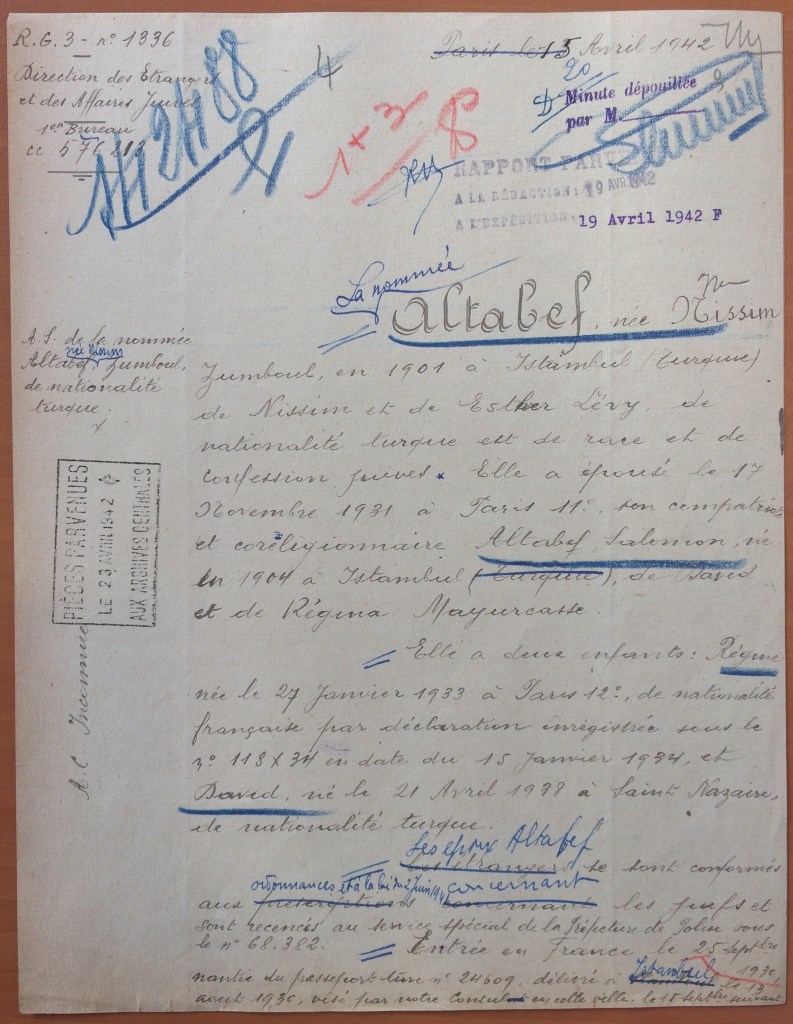 R.G.3 - nº 1336
Direction des Etrangers
et des Affaires Juives
1er Bureau
cc 576213
4
1+3
8
Paris le 15 Avril 1942
20
D Minute dépouillée
par M.
RAPPORT PARVENU
A LA RÉDACTION: 19 AVR 1942
A L'EXPÉDITION: 19 Avril 1942 F
La nommée
Altabef, née Nissim
A.S. de la nommée
née Nissim
Altabef Zumboul,
de nationalité
turque.
Zumboul, en 1901 à Istambul (Turquie)
de Nissim et de Esther Lévy, de
nationalité turque est de race et de
confession juives. Elle a épousé le 17
Novembre 1931 à Paris 11º, son compatriote
et coréligionnaire Altabef, Salomon, né
en 1904 à Istambul (Turquie), de David
et de Régina Mayurcasse.
PIÈCES PARVENUES
LE 23 AVRIL 1942
AUX ARCHIVES CENTRALES
A.C. Inconnue
Elle a deux enfants: Régine
née le 27 Janvier 1933 à Paris 12º, de nationalité
française par déclaration enregistrée sous le
nº 118X34 en date du 15 Janvier 1934, et
David, né le 21 Avril 1938 à Saint Nazaire,
de nationalité turque.
Les époux Altabef
Ces étrangers se sont conformés
ordonnances et à la loi du 2 Juin 1941 concernant
aux prescriptions concernant les juifs et
sont recencés au service spécial de la Préfecture de Police sous
le nº 68.382. Entrée en France le 25 Septbre
Istamboul 1930,
nantie du passeport turc nº 24609, délivré à le 13
aout 1930, visé par notre Consul en cette ville, le 18 Septbre suivant